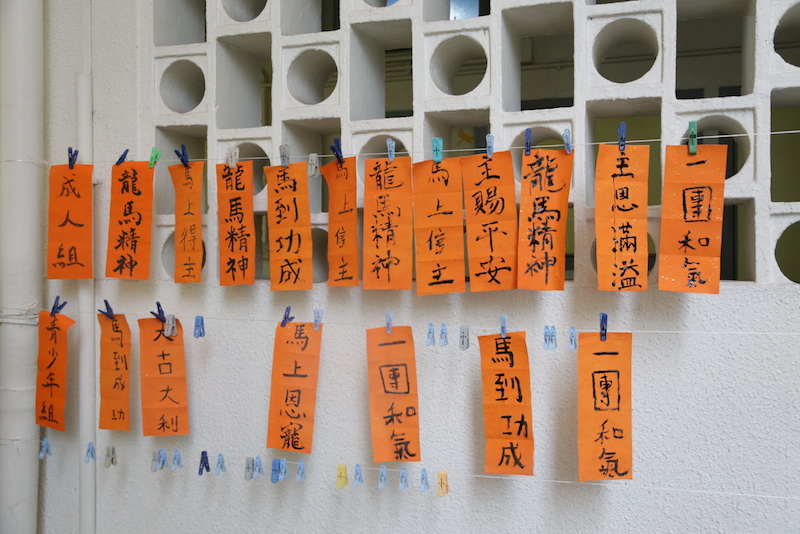 成人組
龍馬精神
馬上得主
龍馬精神
馬到功成
馬上信主
龍馬精神
馬上信主
主賜平安
龍馬精神
主恩滿溢
一團和氣
青少年組
馬到成功
大吉大利
馬上恩寵
一團和氣
馬到功成
一團和氣